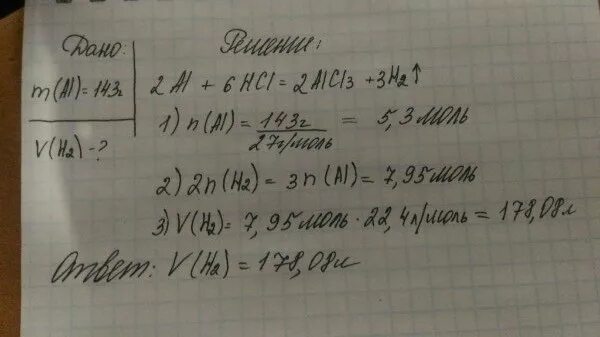 Дано:
m(Al)=143г
V(H₂)-?
Решение:
2Al + 6HCl = 2AlCl₃ + 3H₂↑
1) n(Al) = 143г / 27г/моль = 5,3моль
2) 2n(H₂) = 3n(Al) = 7,95моль
3) V(H₂) = 7,95моль · 22,4л/моль = 178,08л
Ответ: V(H₂) = 178,08л